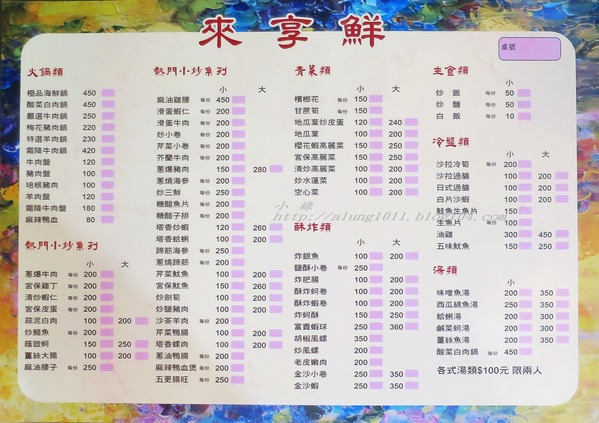 來享鮮
桌號
火鍋類
極品海鮮鍋 450
酸菜白肉鍋 450
嚴選牛肉鍋 250
梅花豬肉鍋 220
特選羊肉鍋 230
霜降牛肉鍋 420
牛肉盤 120
豬肉盤 100
培根豬肉 100
羊肉盤 120
霜降牛肉盤 180
麻辣鴨血 80
熱門小炒系列
小 大
蔥爆牛肉 每份 200
宮保雞丁 每份 200
清炒蝦仁 每份 200
宮保皮蛋 每份 200
蒜泥白肉 100 200
炒鱔魚 每份 200
蔭豉蚵 150 250
薑絲大腸 100 200
麻油腰子 每份 250
熱門小炒系列
小 大
麻油雞腰 每份 450
滑蛋蝦仁 每份 200
滑蛋牛肉 每份 200
炒小卷 每份 200
芹菜小卷 每份 200
芥蘭牛肉 每份 200
蔥爆豬肉 150 280
蔥燒海參 每份 200
炒三鮮 每份 250
糖醋魚片 每份 200
糖醋子排 每份 200
塔香炒蝦 120 260
塔香蛤蜊 100 200
蹄筋海參 每份 250
蔥燒蹄筋 每份 200
芹菜魷魚 150 250
宮保魷魚 150 260
炒劍筍 100 200
炒蘆筍 100 200
沙茶羊肉 每份 200
芹菜鴨腸 100 200
塔香螺肉 100 200
蔥油鴨腸 每份 200
麻辣鴨血煲 每份 200
五更腸旺 每份 250
青菜類
小 大
檳榔花 150
甘蔗筍 每份 150
地瓜葉炒皮蛋 120 240
地瓜葉 100 200
櫻花蝦高麗菜 150 250
宮保高麗菜 150 250
清炒高麗菜 100 200
炒水蓮菜 100 200
空心菜 100 200
小綠
http://alung1011.blog104.com
酥炸類
小 大
炸銀魚 100 200
鹽酥小卷 每份 250
炸肥腸 100 200
酥炸蚵卷 100 200
酥炸蝦卷 100 200
炸蚵酥 150 250
富貴蝦球 250 360
胡椒鳳螺 350
炒風螺 200
老皮嫩肉 200
金沙小卷 250 350
金沙蝦 250 350
主食類
小
炒飯 每份 50
炒麵 每份 50
白飯 每份 10
冷盤類
小 大
沙拉冷筍 每份 200
沙拉過貓 100 200
日式過貓 100 200
白片沙蝦 100 200
鮭魚生魚片 150
生魚片 100
油雞 300 450
五味魷魚 150 250
湯類
小 大
味噌魚湯 200 350
西瓜綿魚湯 200 350
蛤蜊湯 200 350
鹹菜蚵湯 200 350
薑絲魚湯 200 350
酸菜白肉鍋 每份 450
各式湯類$100元 限兩人